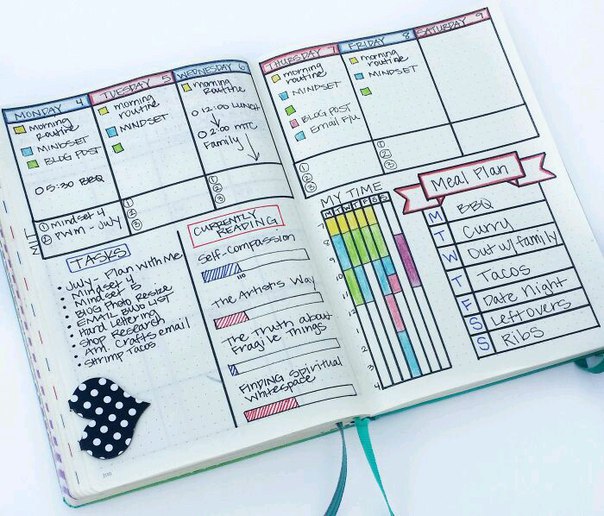 MONDAY 4
morning
routine
MINDSET
BLOG POST
0 5:30 BBQ
① Mindset 4
② PWM - JULY
③
TUESDAY 5
morning
routine
MINDSET
①
②
③
WEDNESDAY 6
morning
routine
0 12:00 LUNCH
0 2:00 MTC
Family
①
②
③
TASKS
July - Plan With Me
Mindset 4
Mindset 5
BLOG Photo Resize
EMAIL BWS LIST
Hand Lettering
Shop Research
Am. Crafts email
Shrimp Tacos
CURRENTLY
READING
Self-Compassion
110
The Artist's Way
The Truth about
Fragile Things
FINDING Spiritual
Whitespace
THURSDAY 7
morning
routine
MINDSET
BLOG POST
Email F/U
①
②
③
FRIDAY 8
morning
routine
MINDSET
①
②
③
SATURDAY 9
MY TIME
M T W T F S S
7
8
9
10
11
12
1
2
3
4
Meal Plan
M BBQ
T Curry
W Out w/family
T Tacos
F Date Night
S Leftovers
S Ribs